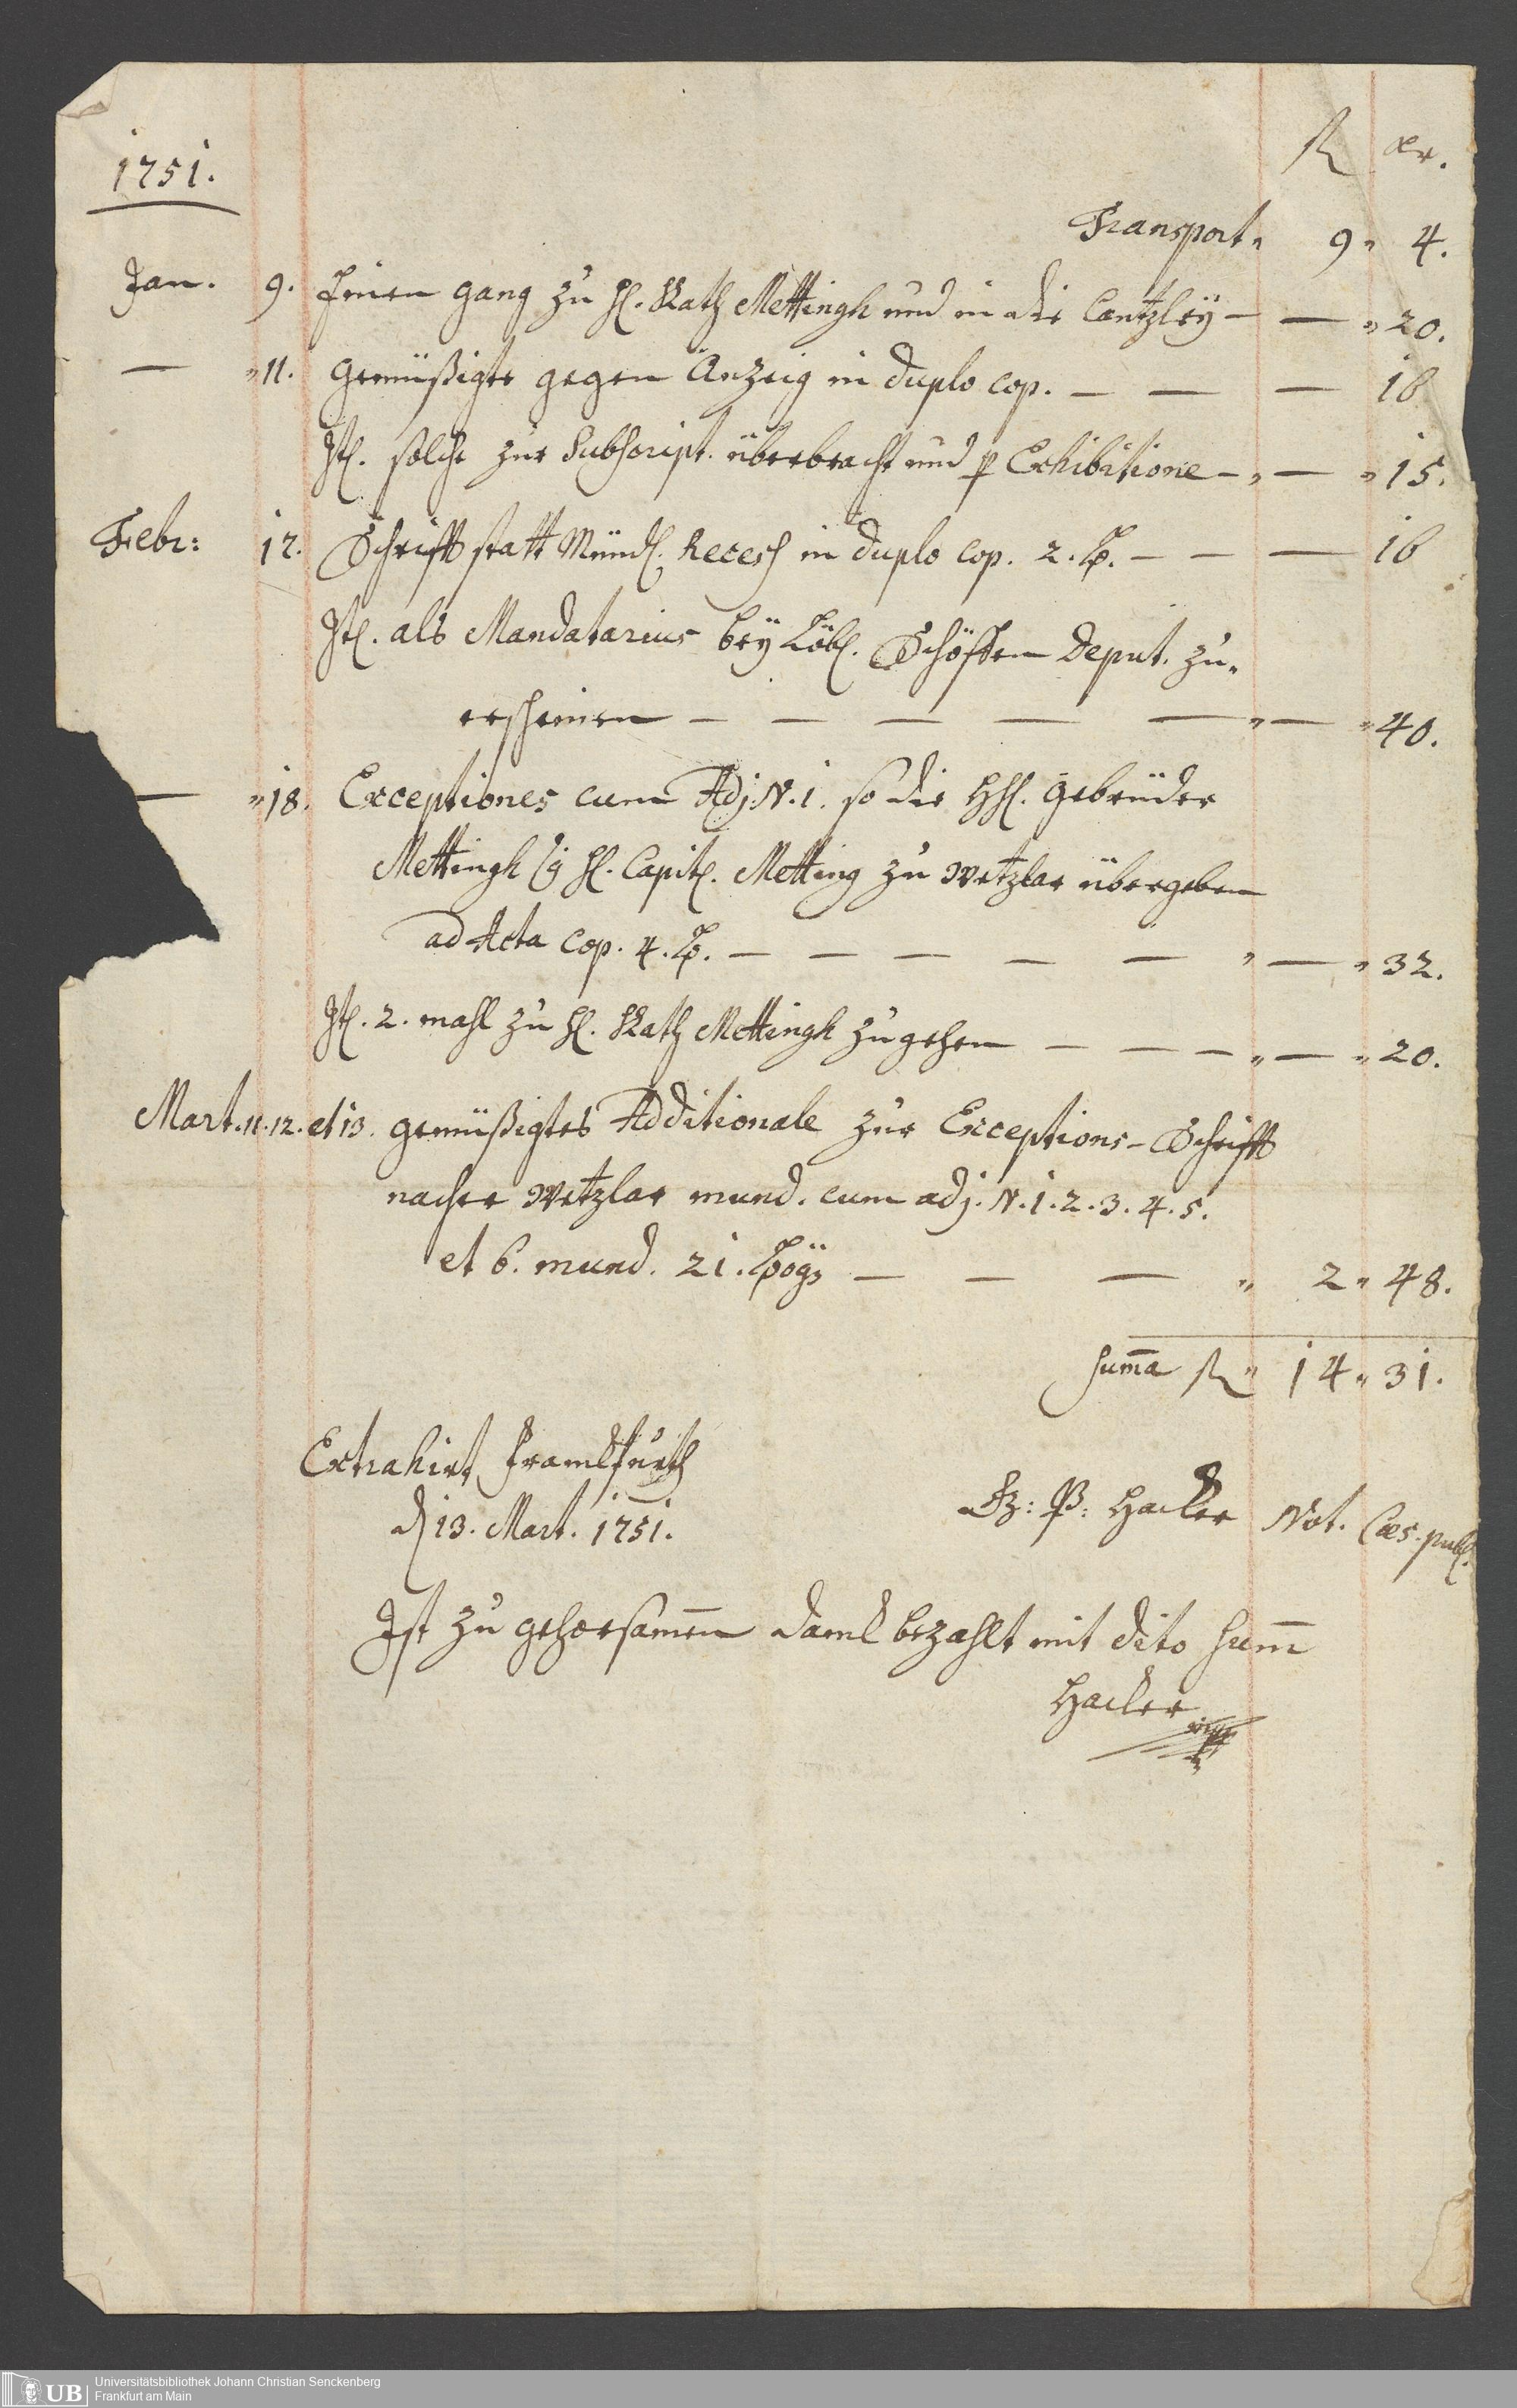 1751.
fl xr.
Transport „ 9 „ 4.
Jan. 9. Einen gang zu H. Rath Mettingh und in die Cantzleÿ — — „ 20.
— „ 11. Gemüßigte gegen Anzeig in duplo cop. — — — 16
It. solche zur Subscript. überbracht und p Exhibitione — „ — „ 15.
Febr: 12. Schrifft statt Mündl. Recess in duplo cop. 2. B. — — — 16
It. als Mandatarius beÿ Löbl. Schöffen Deput. zu„
erscheinen — — — — — „ — „ 40.
— „ 18. Exceptiones cum Adj. N. 1. so die HH. Gebrüder
Mettingh Cg H. Capit. Metting zu Wetzlar übergeben
ad Acta cop. 4. B. — — — — — „ — „ 32.
It. 2. mahl zu H. Rath Mettingh zugehen — — — „ — „ 20.
Mart. 11. 12. et 13. gemüßigtes Additionale zur Exceptions-Schrifft
nacher Wetzlar mund. cum adj. N. 1. 2. 3. 4. 5.
et 6. mund. 21. Bög — — — „ 2 „ 48.
Sum̄a fl „ 14 „ 31.
Extrahirt Franckfurth
d 13. Mart. 1751.
P: Hacker Not. Cæs. publ.
Ist zu gehorsamen danck bezahlt mit dito Sum̄
Hacker